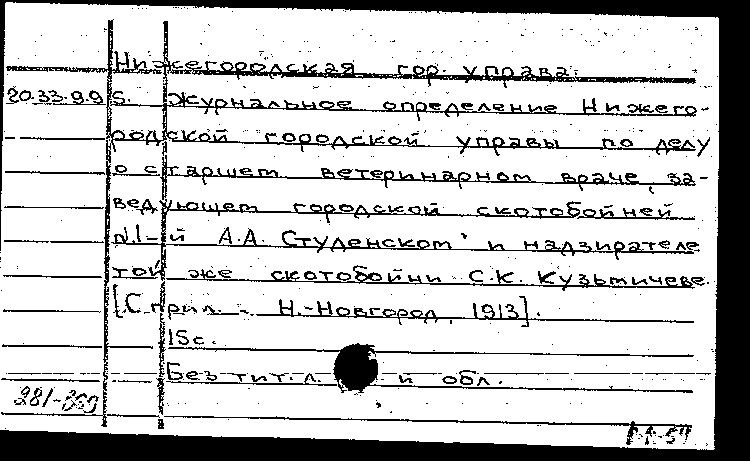 Нижегородская гор. управа.
20.33.9.9 5. Журнальное определение Нижего-
родской городской управы по делу
о старшем ветеринарном враче, за-
ведующем городской скотобойней
N.1-й А.А. Студенском и надзирателе
той же скотобойни С.К. Кузьмичеве.
[С прил. - Н.-Новгород, 1913].
15с.
Без тит. л. и обл.
281-